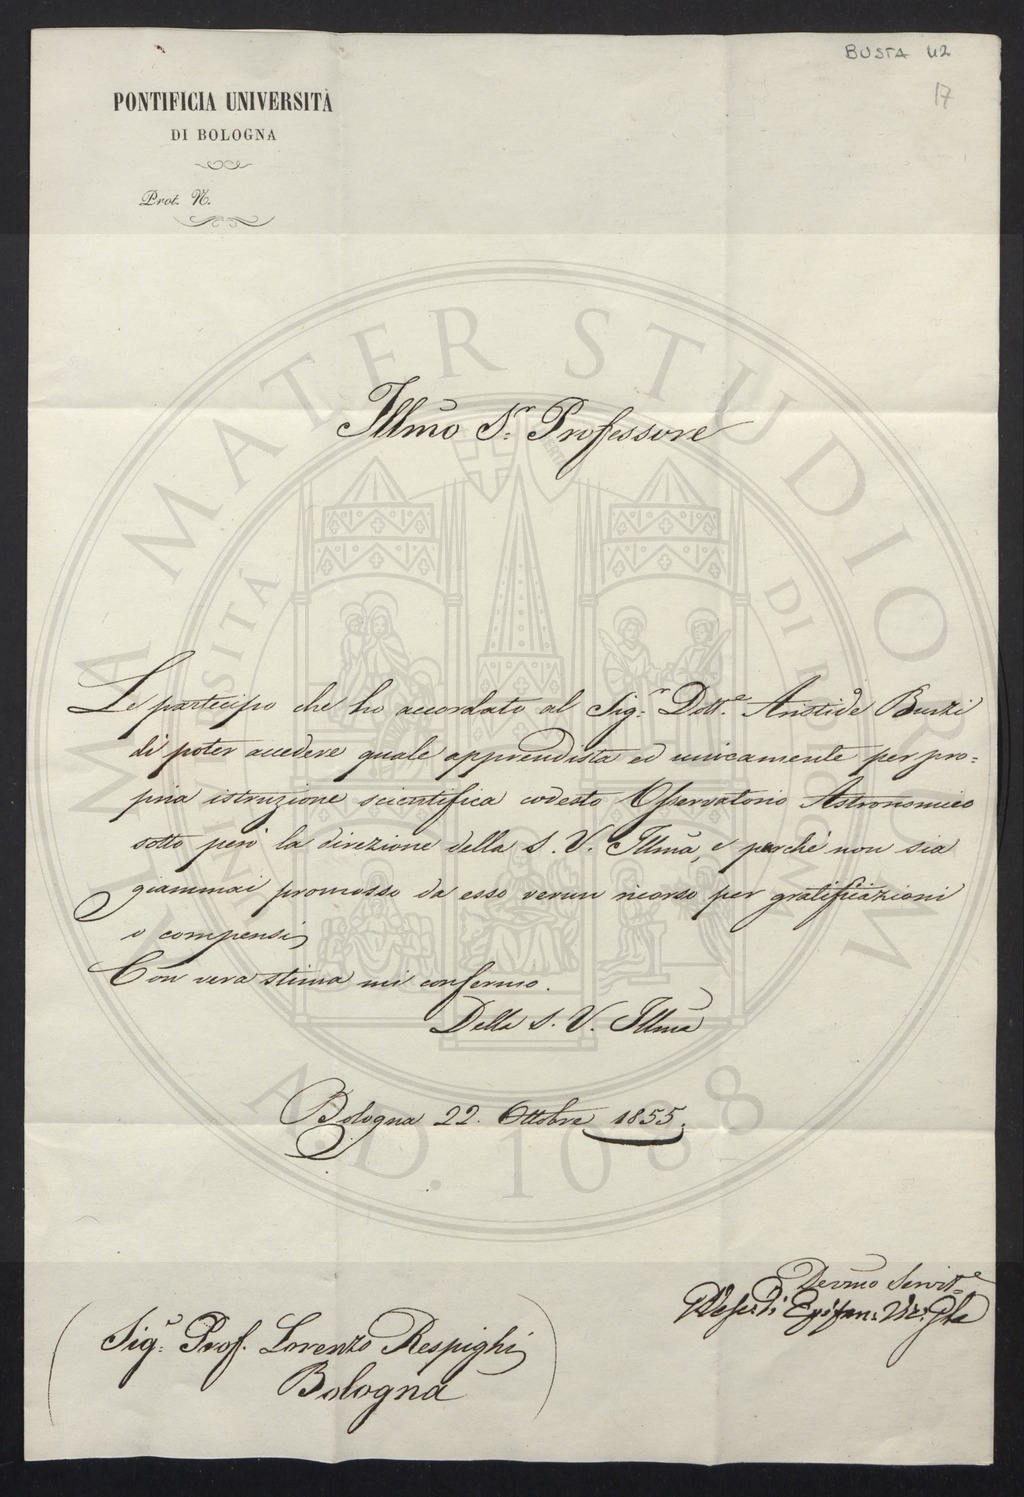 BUSTA 42
17
PONTIFICIA UNIVERSITÀ
DI BOLOGNA
Prot. N.
Illmo Sr. Professore
Le partecipo che ho accordato al Sigr. Dotte. Aristide Buzzi
di poter accedere quale apprendista ed unicamente per pro=
pria istruzione scientifica codesto Osservatorio Astronomico
sotto però la direzione della S. V. Illma, e perchè non sia
giammai promosso da esso verun ricorso per gratificazioni
o compensi,
Con vera stima mi confermo.
Della S. V. Illma
Bologna 22. Ottobre 1855.
Devmo Servite.
Sigr. Prof. Lorenzo Respighi
Bologna
ALMA MATER STUDIORUM
UNIVERSITÀ DI BOLOGNA
A.D. 1088